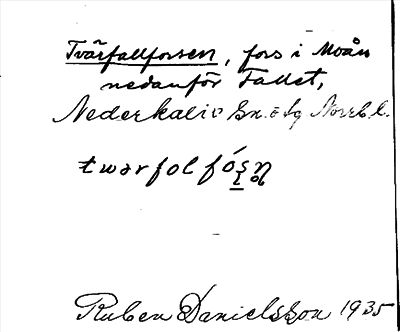 Tvärfallforsen, fors i Moån
nedanför Fallet,
Nederkalix sn. o sg Norrb. l.
twərfolfó̱şn̥
Ruben Danielsson 1935